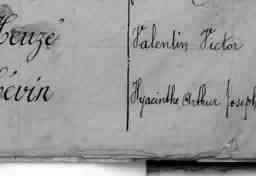 Heuzé Valentin Victor
Hyacinthe Arthur Joseph